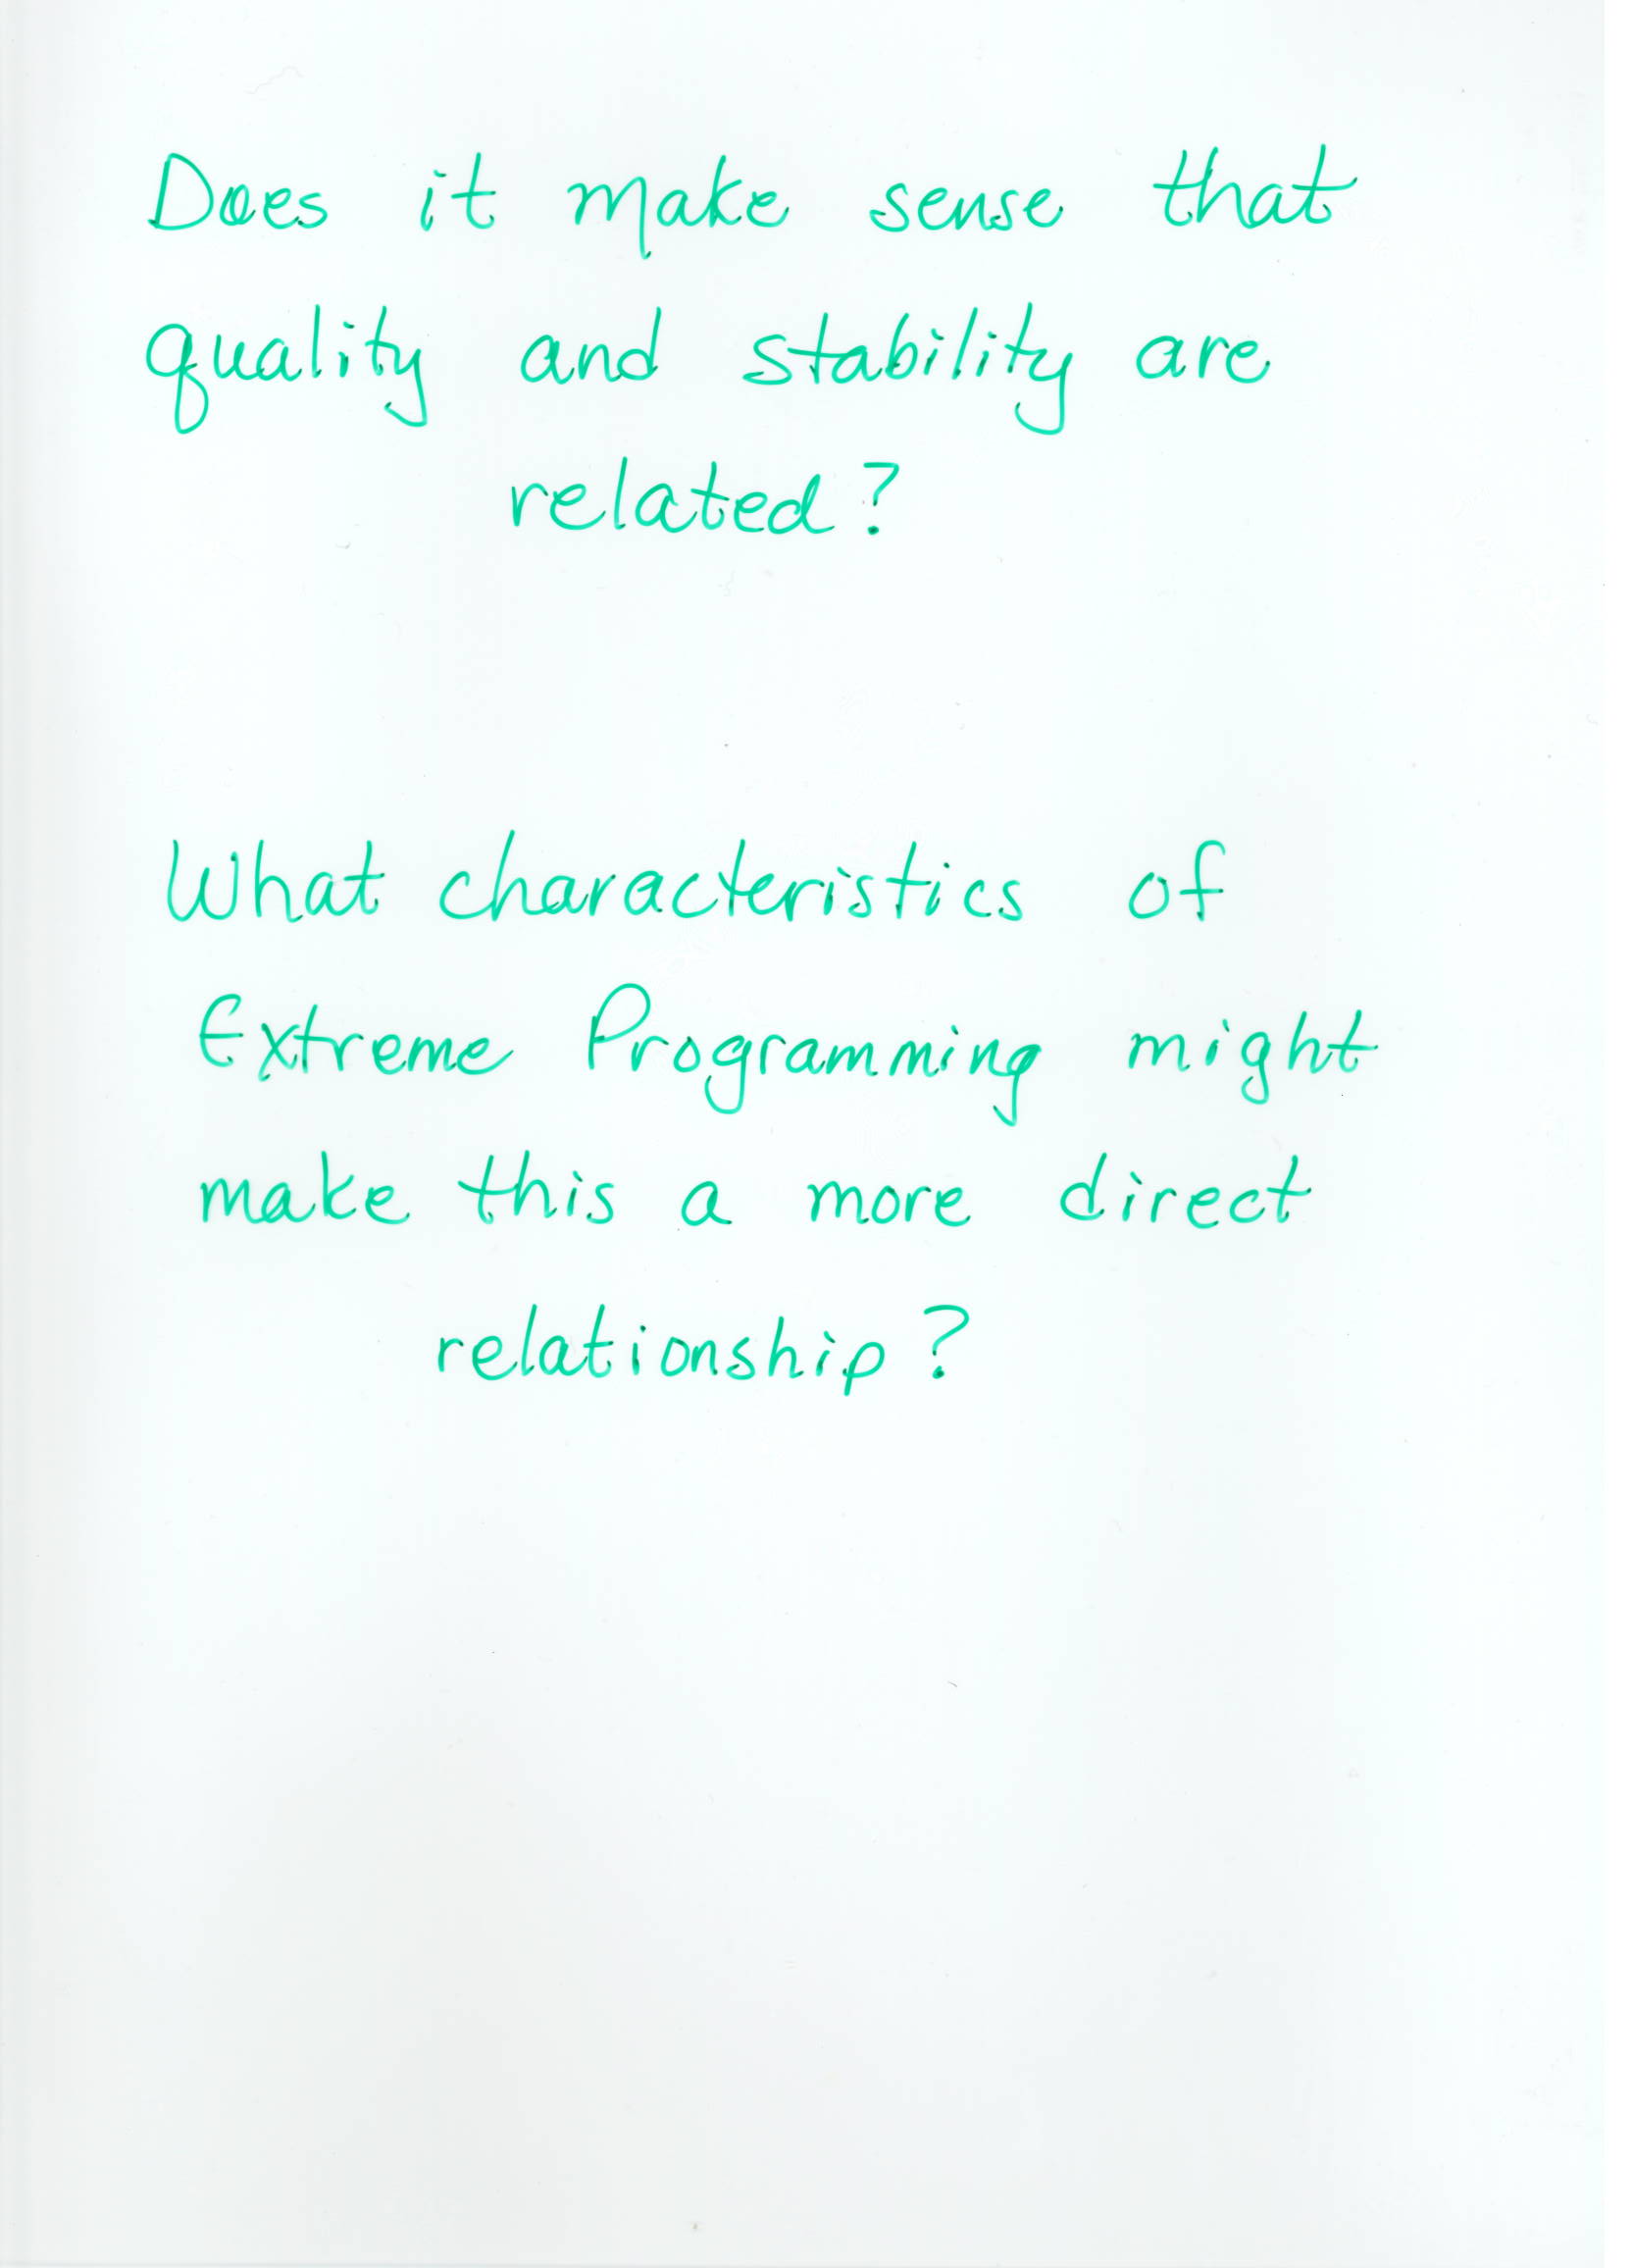 Does it make sense that
quality and stability are
related?
What characteristics of
Extreme Programming might
make this a more direct
relationship?